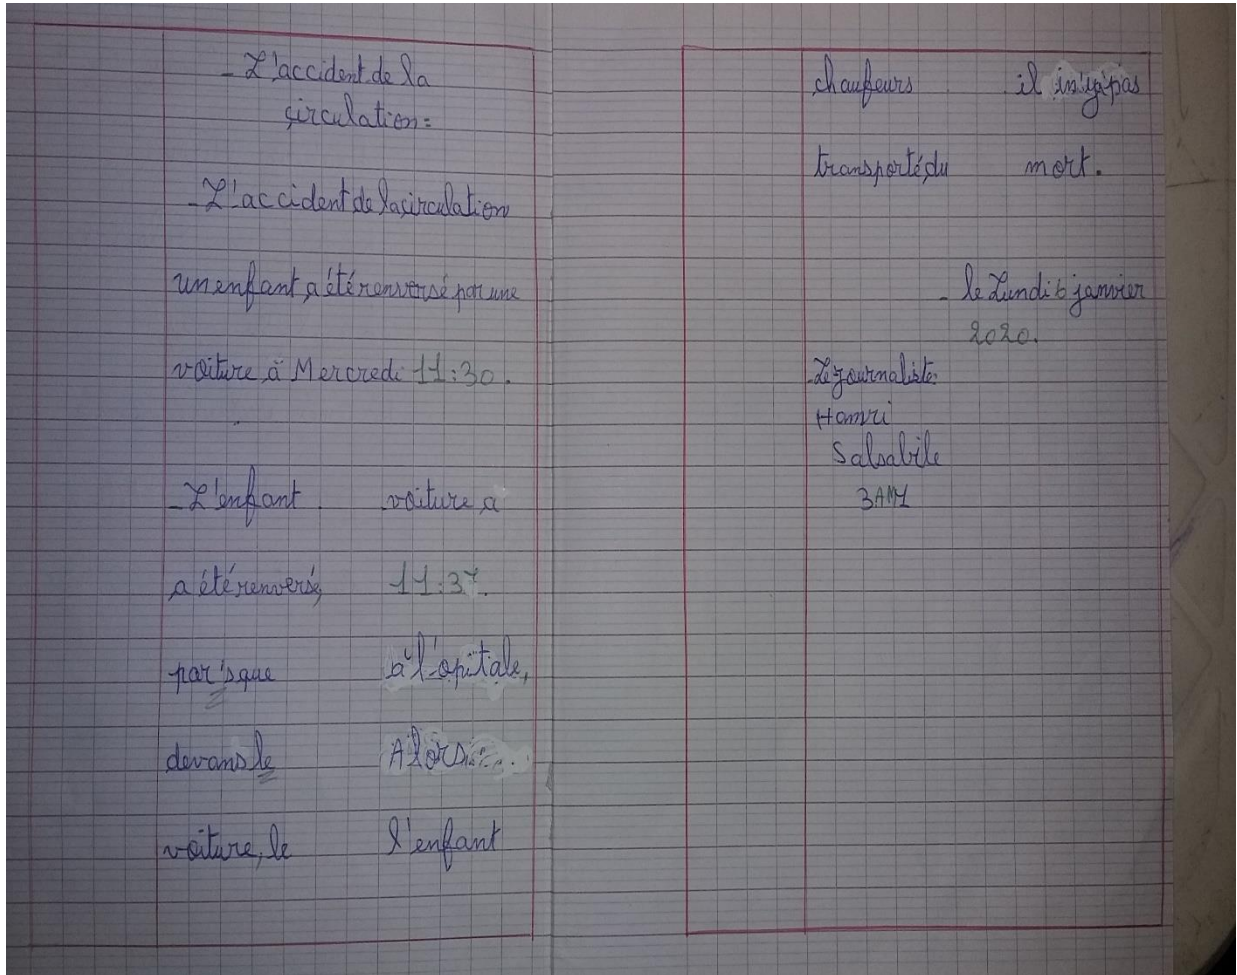 - L'accident de la
circulation:
- L'accident de la circulation
un enfant, a été renversé par une
voiture, à Mercredi 11:30.
- L'enfant
a été renversé,
par'sque
devans le
voiture, le
voiture, a
11:37.
à l'opitale,
Alors...
l'enfant
chaufeurs
transporté, du
il n'yà pas
mort.
- le Lundi 6 janvier
2020.
- Le journaliste:
Hamri
Salsabile
3AM1